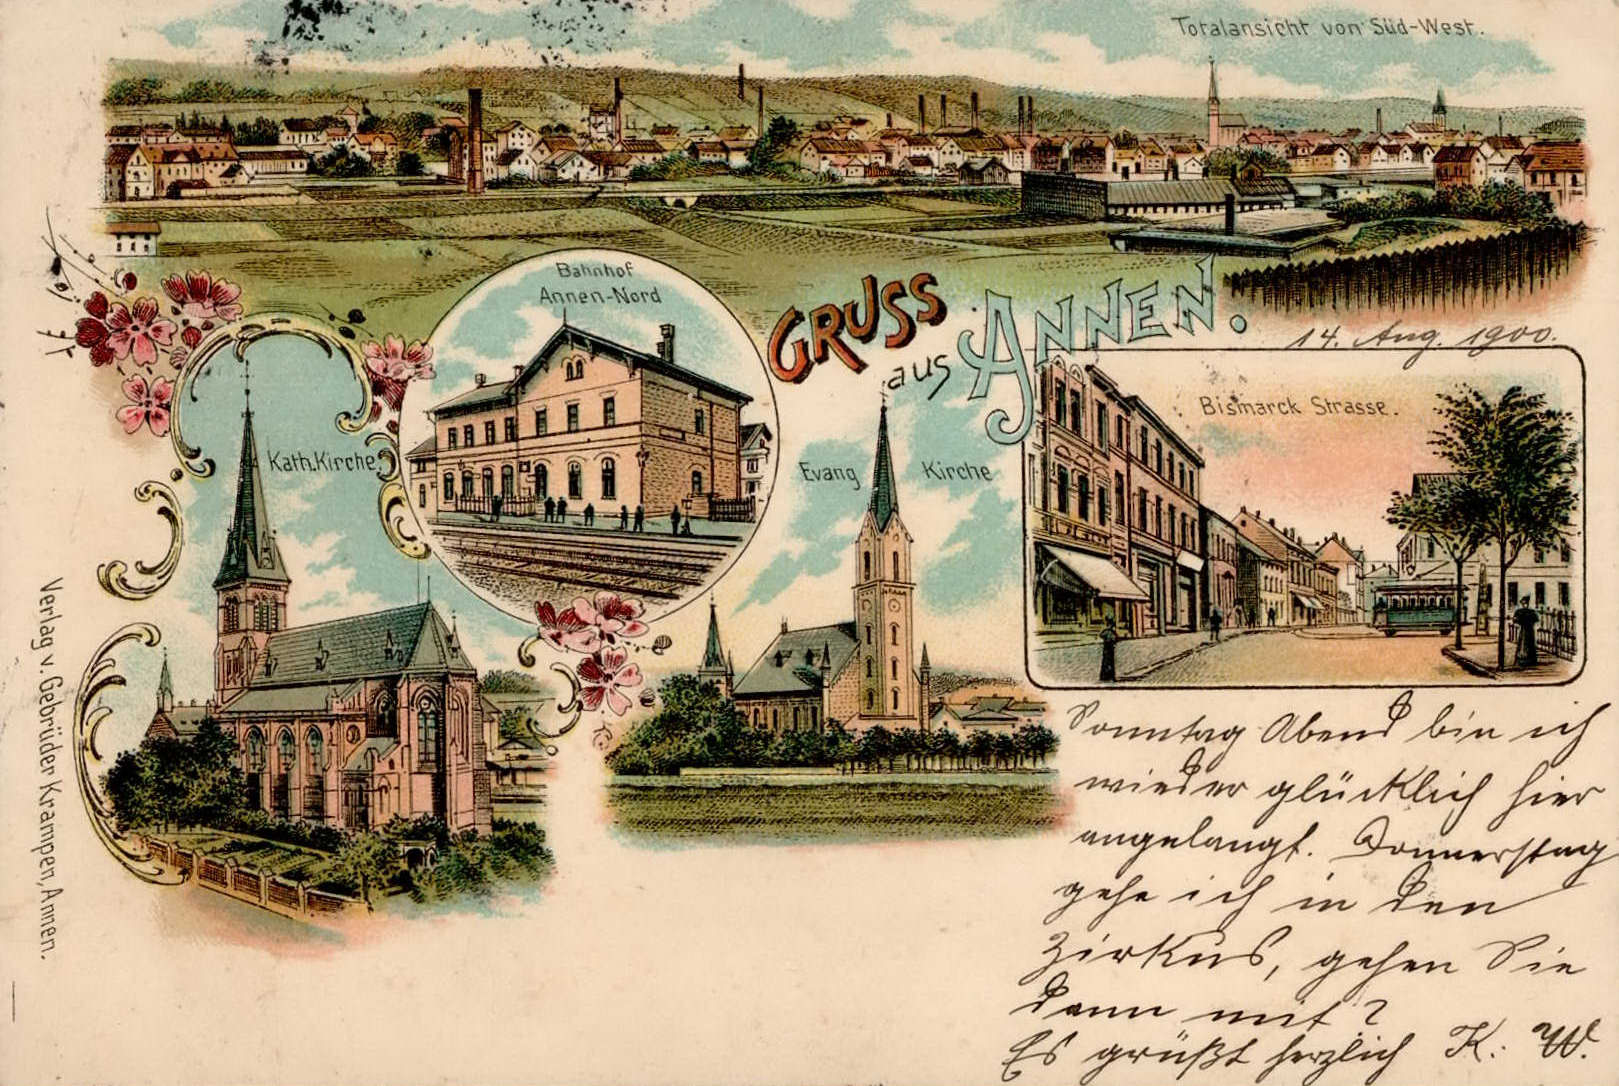 Totalansicht von Süd-West.
Bahnhof
Annen-Nord
GRUSS
aus ANNEN.
14. Aug. 1900.
Kath. Kirche.
Evang Kirche
Bismarck Strasse.
Sonntag Abend bin ich
wieder glücklich hier
angelangt. Donnerstag
gehe ich in den
Zirkus, gehen Sie
dann mit?
Es grüßt herzlich K. W.
Verlag v. Gebrüder Krampen, Annen.